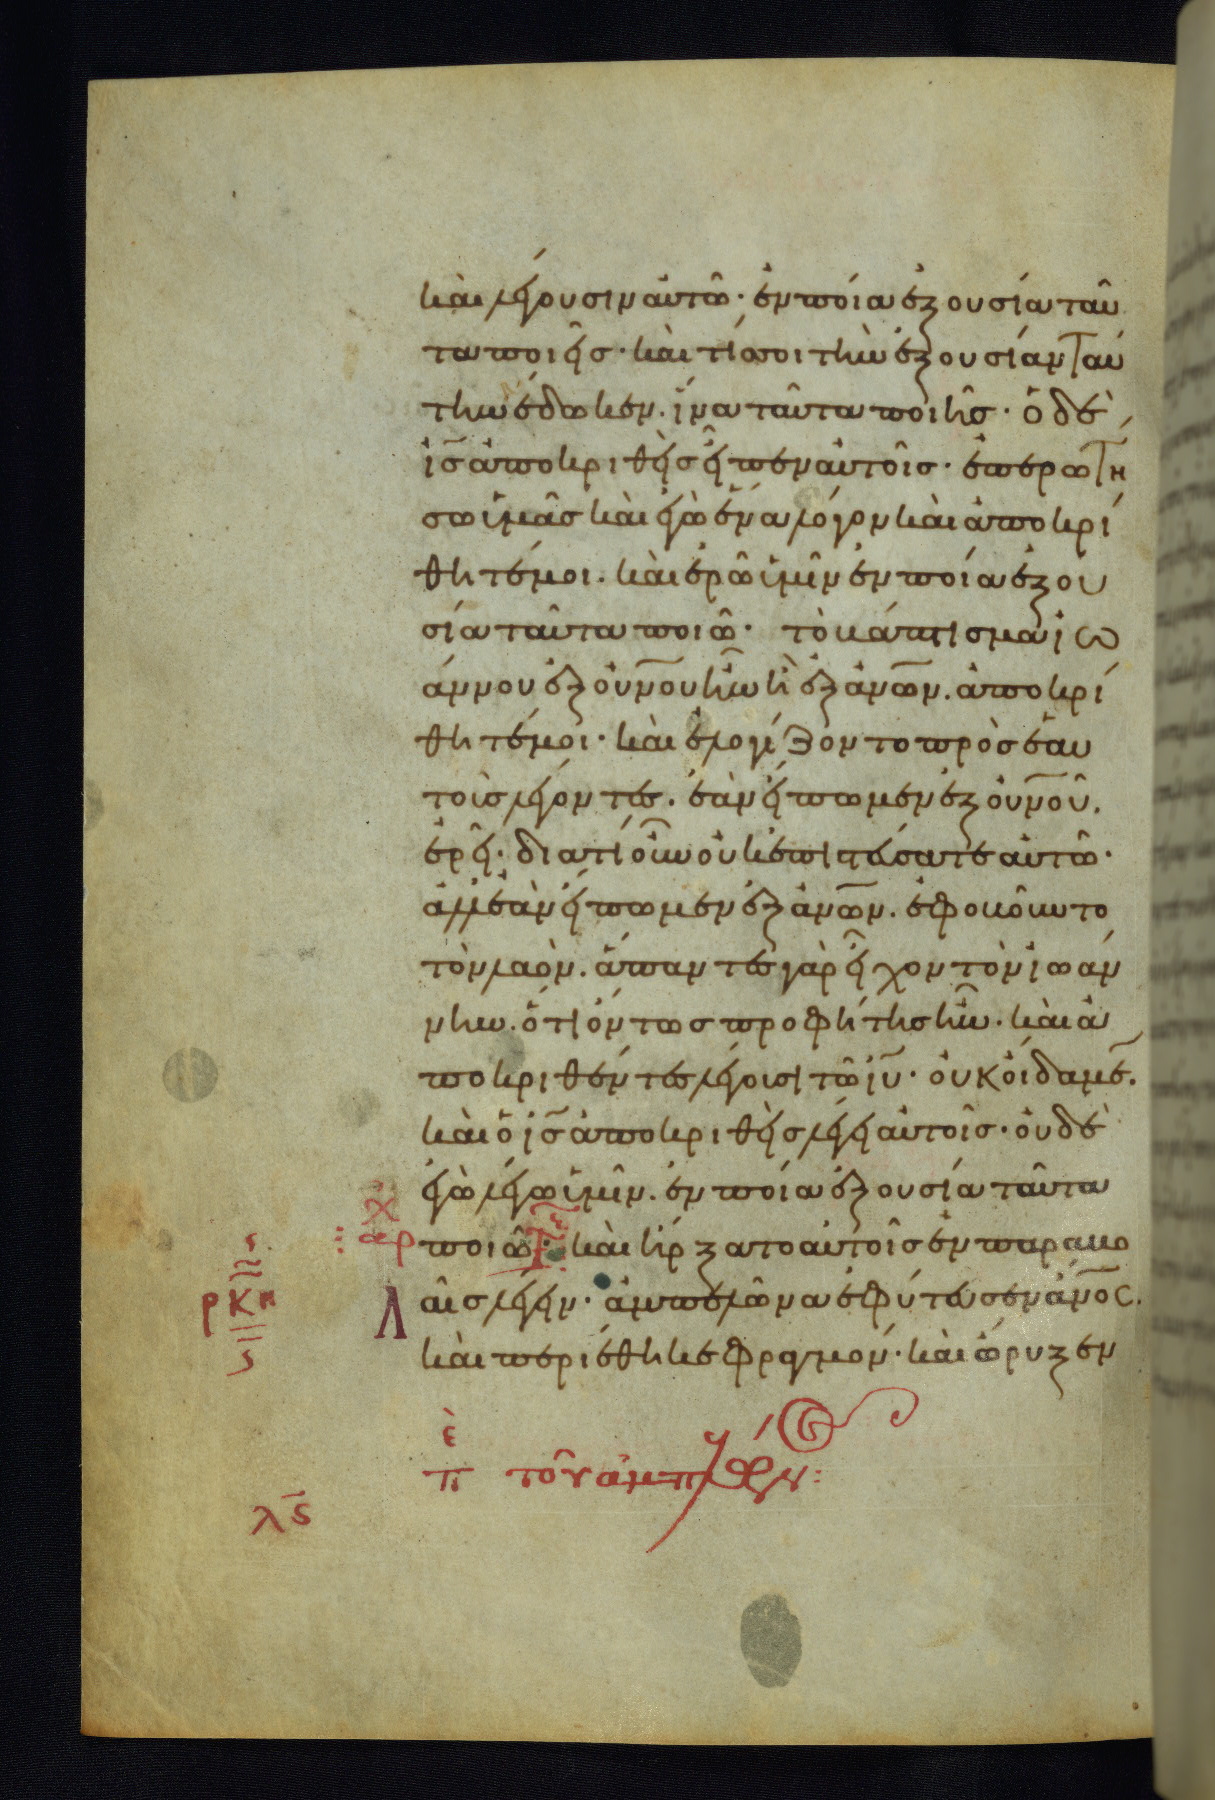 καὶ λέγουσιν αὐτῶ· ἐν ποία ἐξουσία ταῦ
τα ποιεῖς· καὶ τίς σοι τὴν ἐξουσίαν ταύ
την ἔδωκεν. ἵνα ταῦτα ποιῆς· ὁ δὲ
ἰς ἀποκριθεὶς εἶπεν αὐτοῖς· ἐπερωτή
σω ὑμᾶς καὶ ἐγὼ ἕνα λόγον καὶ ἀποκρί
θητέ μοι. καὶ ἐρῶ ὑμῖν ἐν ποία ἐξου
σία ταῦτα ποιῶ· τὸ βάπτισμα ἰω
άννου ἐξ οὐνοῦ ἦν ἢ ἐξ ἀνων. ἀποκρί
θητέ μοι· καὶ ἐλογίζοντο πρὸς ἑαυ
τοὺς λέγοντες. ἐὰν εἴπωμεν ἐξ οὐνοῦ.
ἐρεῖ· διατί οὖν οὐκ ἐπιστεύσατε αὐτῶ·
ἀλλ ἐὰν εἴπωμεν ἐξ ἀνων. ἐφοβοῦντο
τὸν λαόν. ἅπαντες γὰρ εἶχον τὸν ἰωάν
νην. ὅτι ὄντως προφήτης ἦν. καὶ ἀ
ποκριθέντες λέγουσι τῶ ἰυ· οὐκ οἴδαμε̄.
καὶ ὁ ἰς ἀποκριθεὶς λέγει αὐτοῖς· οὐδὲ
ἐγὼ λέγω ὑμῖν. ἐν ποία ἐξουσία ταῦτα
αρχ ποιῶ· καὶ ἤρξατο αὐτοῖς ἐν παραβο
ρκη
λαῖς λέγειν· ἀμπελῶνα ἐφύτευσεν ἀνος.
καὶ περιέθηκε φραγμόν· καὶ ὤρυξεν
πε τοῦ ἀμπελῶνος:
λς